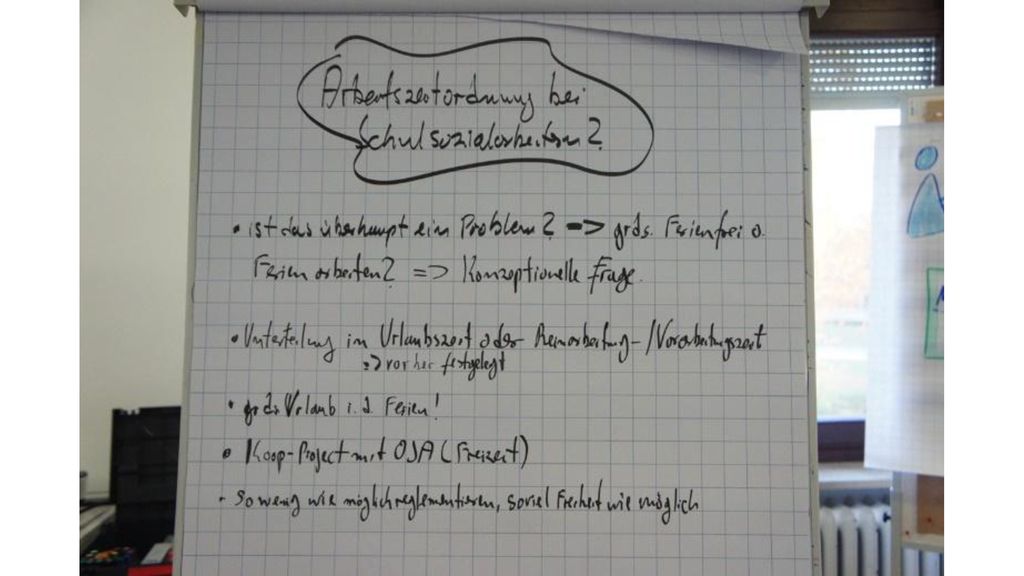 Arbeitszeitordnung bei
Schulsozialarbeitern?
• ist das überhaupt ein Problem? => grds. Ferienfrei o.
Ferien arbeiten? => Konzeptionelle Frage.
• Unterteilung in Urlaubszeit oder -/Vorarbeitungszeit
=> vorher festgelegt
• grds Urlaub i. d. Ferien!
• Koop-Project mit OJA (Freizeit)
- so wenig wie möglich reglementieren, soviel Freiheit wie möglich